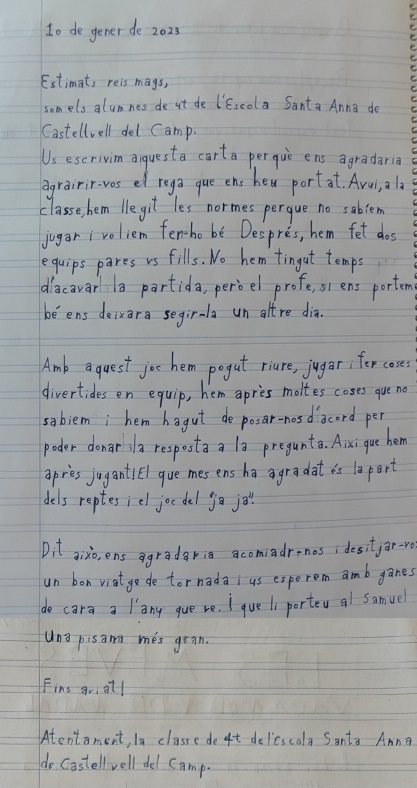 10 de gener de 2023
Estimats reis mags,
som els alumnes de 4t de l'Escola Santa Anna de
Castellvell del Camp.
Us escrivim aquesta carta perquè ens agradaria
agrairir-vos el rega que ens heu portat. Avui, a la
classe, hem llegit les normes perque no sabíem
jugar i voliem fer-ho bé Després, hem fet dos
equips pares vs fills. No hem tingut temps
d'acavar la partida, però el profe, si ens portem
bé ens deixara segir-la un altre dia.
Amb aquest joc hem pogut riure, jugar i fer coses
divertides en equip, hem après moltes coses que no
sabiem i hem hagut de posar-nos d'acord per
poder donar la resposta a la pregunta. Aixi que hem
après jugant! El que mes ens ha agradat és la part
dels reptes i el joc del "ja ja".
Dit això, ens agradaria acomiadr-nos i desitjar-vos
un bon viatge de tornada i us esperem amb ganes
de cara a l'any que ve. I que li porteu al Samuel
Una pisarra més gran.
Fins aviat!
Atentament, la classe de 4t de l'Escola Santa Anna
de Castellvell del Camp.